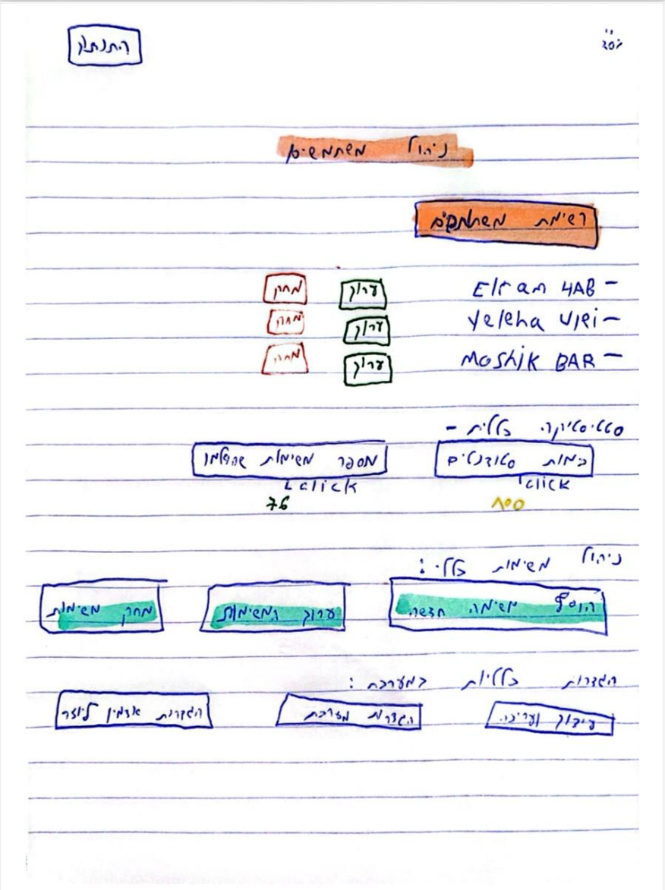 התנתק
ניהול משתמשים
רשימת משתמשים
Eliram HAB - ערוך מחק
- ערוך מחק
Moshik BAR - ערוך מחק
סטטיסטיקה כללית -
כמות סטודנטים מספר משימות שהושלמו
click click
100 76
ניהול משימות כללי:
הוסף משימה חדשה ערוך משימות מחק משימות
הגדרות כלליות במערכת:
עיצוב הגדרות מערכת הגדרות אדמין ליוזר